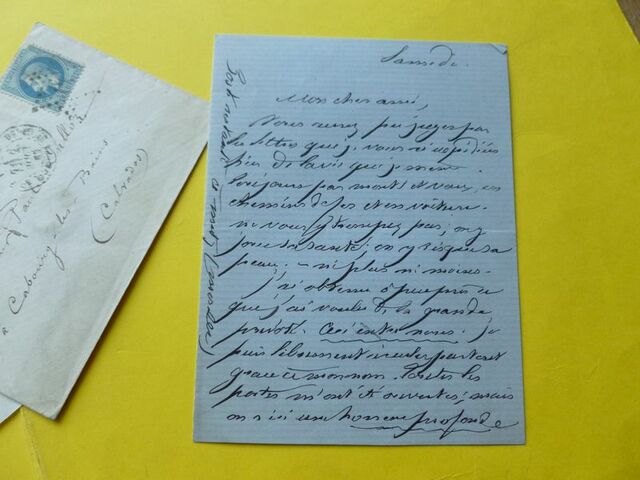 Samedi.
Mon cher ami,
Vous avez pu juger par
les lettres que je vous ai expédiées
bien de la vie que je mène.
Toujours par monts et vaux, en
chemins de fer et en voiture.
ne vous y trompez pas; on y
joue sa santé; on y risque sa
peau; – ni plus ni moins.
J'ai obtenu à peu près ce
que j'ai voulu de la grande
Ceci entre nous: je
puis librement circuler partout
grace à mon nom. Toutes les
portes m'ont été ouvertes; mais
on a ici une horreur profonde
Poste restante à
à Cabourg les Bains
(Calvados)